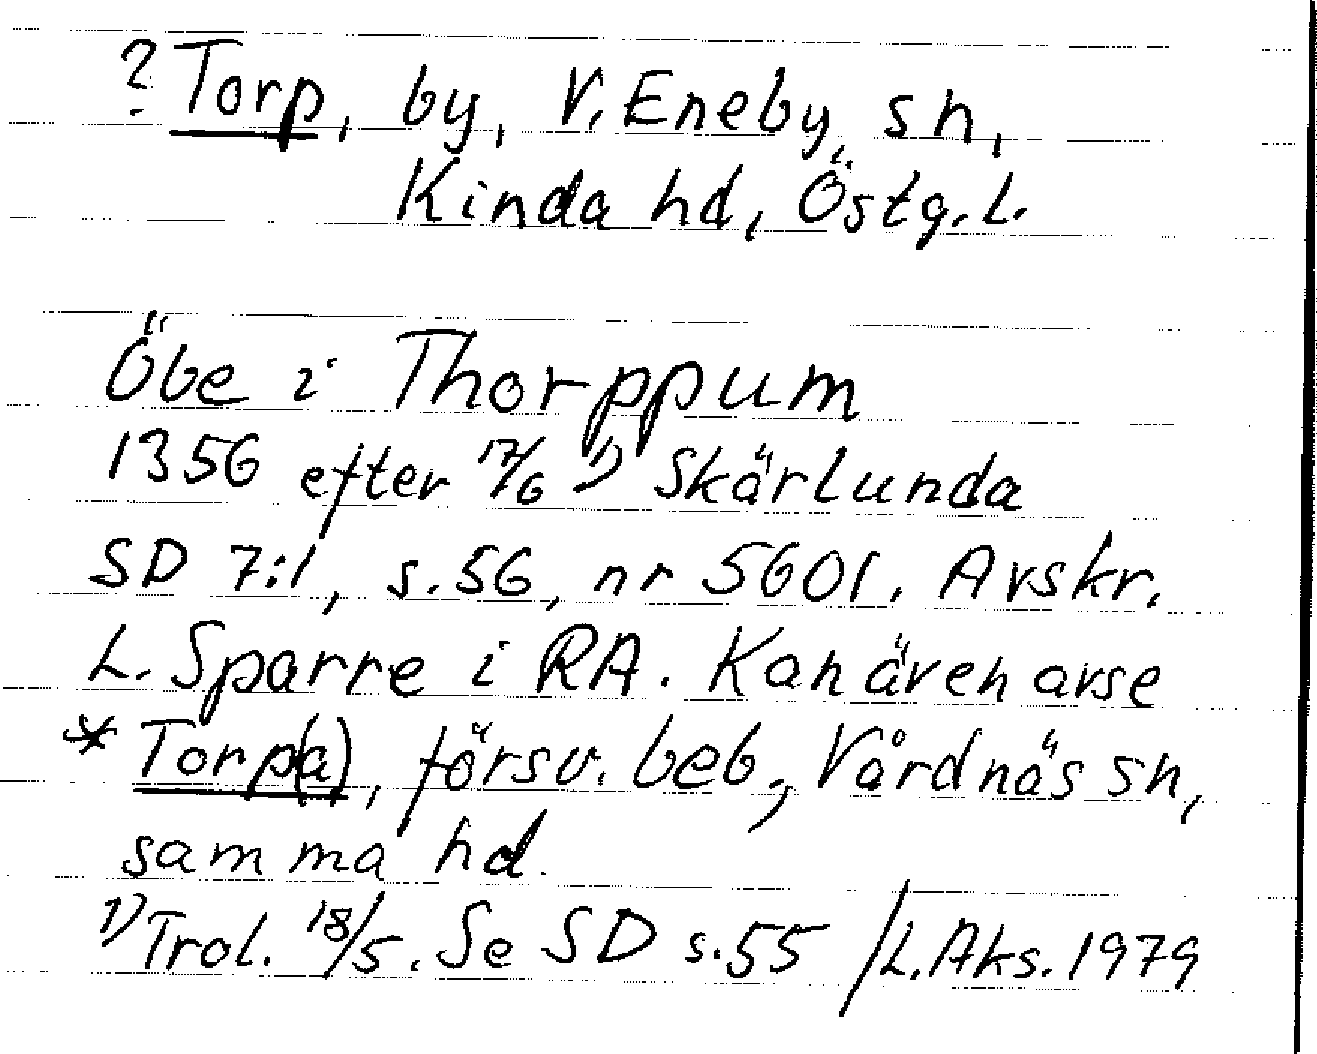 ? Torp, by, V. Eneby sn,
Kinda hd, Östg. L.
Öbe i Thorppum
1356 efter 17/6 1) Skärlunda
SD 7:1, s. 56, nr 5601. Avskr.
L. Sparre i RA. Kan även avse
* Torp(a), försv. beb., Vårdnäs sn,
samma hd.
1) Trol. 18/5. Se SD s. 55 / L. Aks. 1979